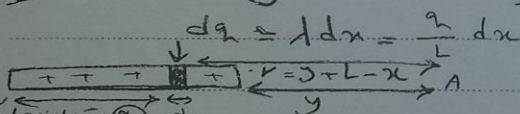 dq = λdx = q/L dx
+ + + + r = y+L-x A
y